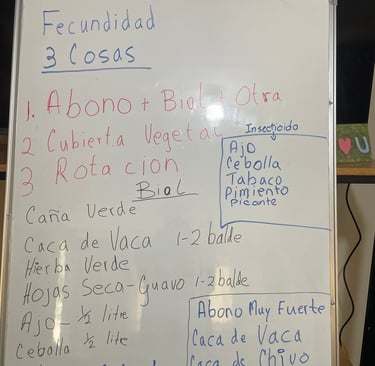 Fecundidad
3 Cosas
1. Abono + Biol + Otra
2 Cubierta Vegetal
3 Rotacion
Insecticida
Ajo
Cebolla
Tabaco
Pimiento
Picante
Biol
Caña Verde
Caca de Vaca 1-2 balde
Hierba Verde
Hojas Seca-Guavo 1-2 balde
Ajo - ½ litre
Cebolla ½ lite
Abono Muy Fuerte
Caca de Vaca
Caca de Chivo
U